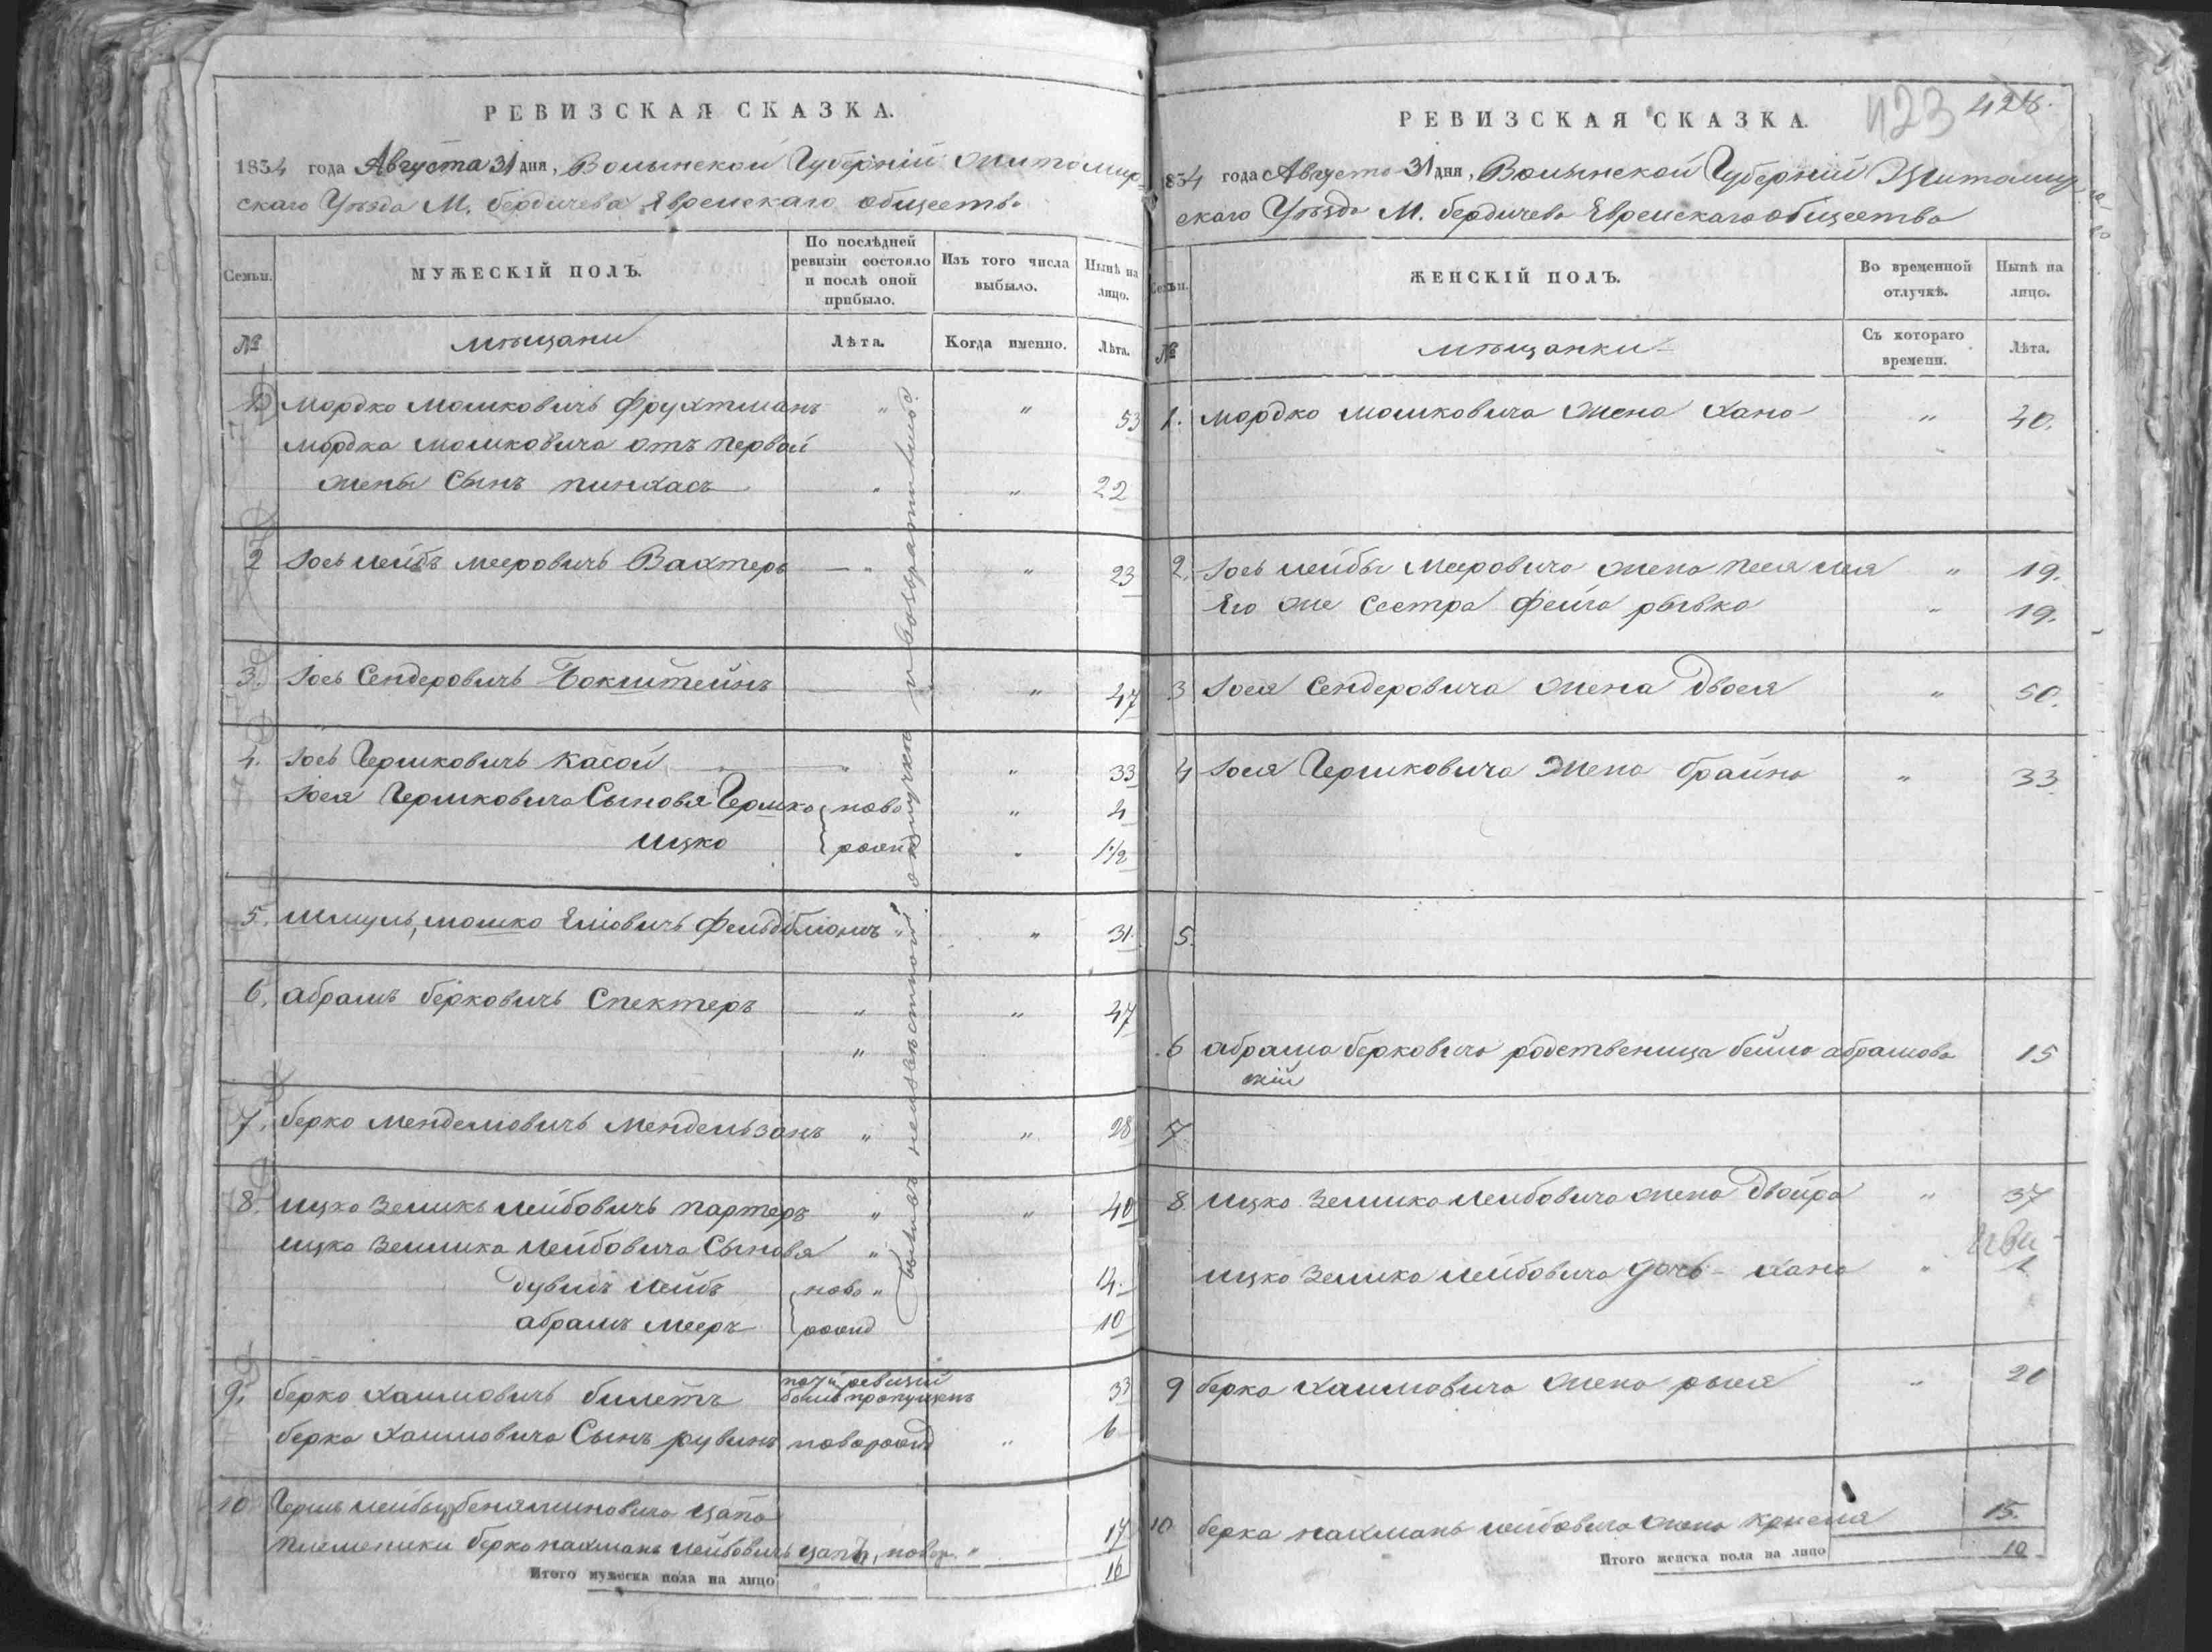 РЕВИЗСКАЯ СКАЗКА.
1834 года Августа 31 дня, Волынской Губерніи Житомир-
скаго Уѣзда М. Бердичева Еврейскаго общества
Семьи.
МУЖЕСКІЙ ПОЛЪ.
По послѣдней ревизіи состояло и послѣ оной прибыло.
Изъ того числа выбыло.
Нынѣ на лицо.
№
мѣщани
Лѣта.
Когда именно.
Лѣта.
1 Мордко Мошковичъ Фрухтманъ " " 53
Мордка Мошковича отъ первой
жены Сынъ Пинхасъ " " 22
2 Іось Лейбъ Мееровичъ Вахтеръ " " 23
3. Іось Сендеровичъ Бокштейнъ " 47
4. Іось Гершковичъ Касой " " 33
Іося Гершковича Сыновя Гершко ново " 4
Ицко рожд " 1 1/2
5. Шмуль Мошко Еліовичъ Фельдблюмъ " " 31
6. Абрамъ Берковичъ Спектеръ " " 47
"
7. Берко Менделіовичъ Мендельзонъ " " 28
8. Ицко Зеликъ Лейбовичъ Партеръ " " 40
Ицко Зелика Лейбовича Сыновя "
Дувидъ Лейбъ ново " 14.
Абрамъ Мееръ рожд 10
9. Берко Хаимовичъ Билетъ по 7й ревизіи былъ пропущенъ 33
Берка Хаимовича Сынъ Рувинъ новорожд " 6
10 Гершъ Лейбы Беняминовича Цапа
племеники Берко Нахманъ Лейбовичъ Цапъ, новор. " 17
Итого мужеска пола на лицо 16
были въ неизвестной отлучки и возвратились.
423 428.
РЕВИЗСКАЯ СКАЗКА.
1834 года Августа 31 дня, Волынской Губерніи Житомир
скаго Уѣзда М. Бердичева Еврейскаго общества
Семьи.
ЖЕНСКІЙ ПОЛЪ.
Во временной отлучкѣ.
Нынѣ на лицо.
№
мѣщанки
Съ котораго времени.
Лѣта.
1. Мордко Мошковича жена Хана " 40.
2. Іось Лейбы Мееровича жена Песя Лея " 19.
Его же Сестра Фейга Рывка " 19.
3 Іося Сендеровича жена Двося " 50.
4 Іося Гершковича жена Брайна " 33
5.
6 Абрама Берковича родственица Бейла Абрамова 15
7.
8. Ицко Зелика Лейбовича жена Двойра " 37
Ицко Зелика Лейбовича дочь Хана " 1
9 Берка Хаимовича жена Рыся " 20
10 Берка Нахмань Лейбовича жена Крыся 15.
Итого женска пола на лицо 10